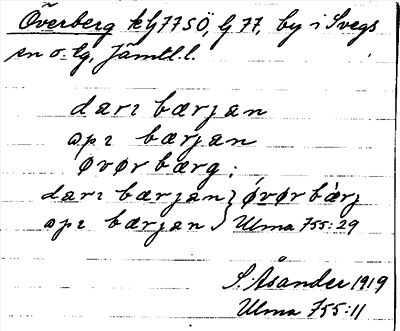 Överberg kG7750, G 77, by i Svegs
sn o. tg, Jämtl. l.
darı bærjan
opı bærjan
øvør bærg;
darı bærjan } øvør bærj
opı bærjan } Ulma 755:29
S. Åsander 1919
Ulma 755:11